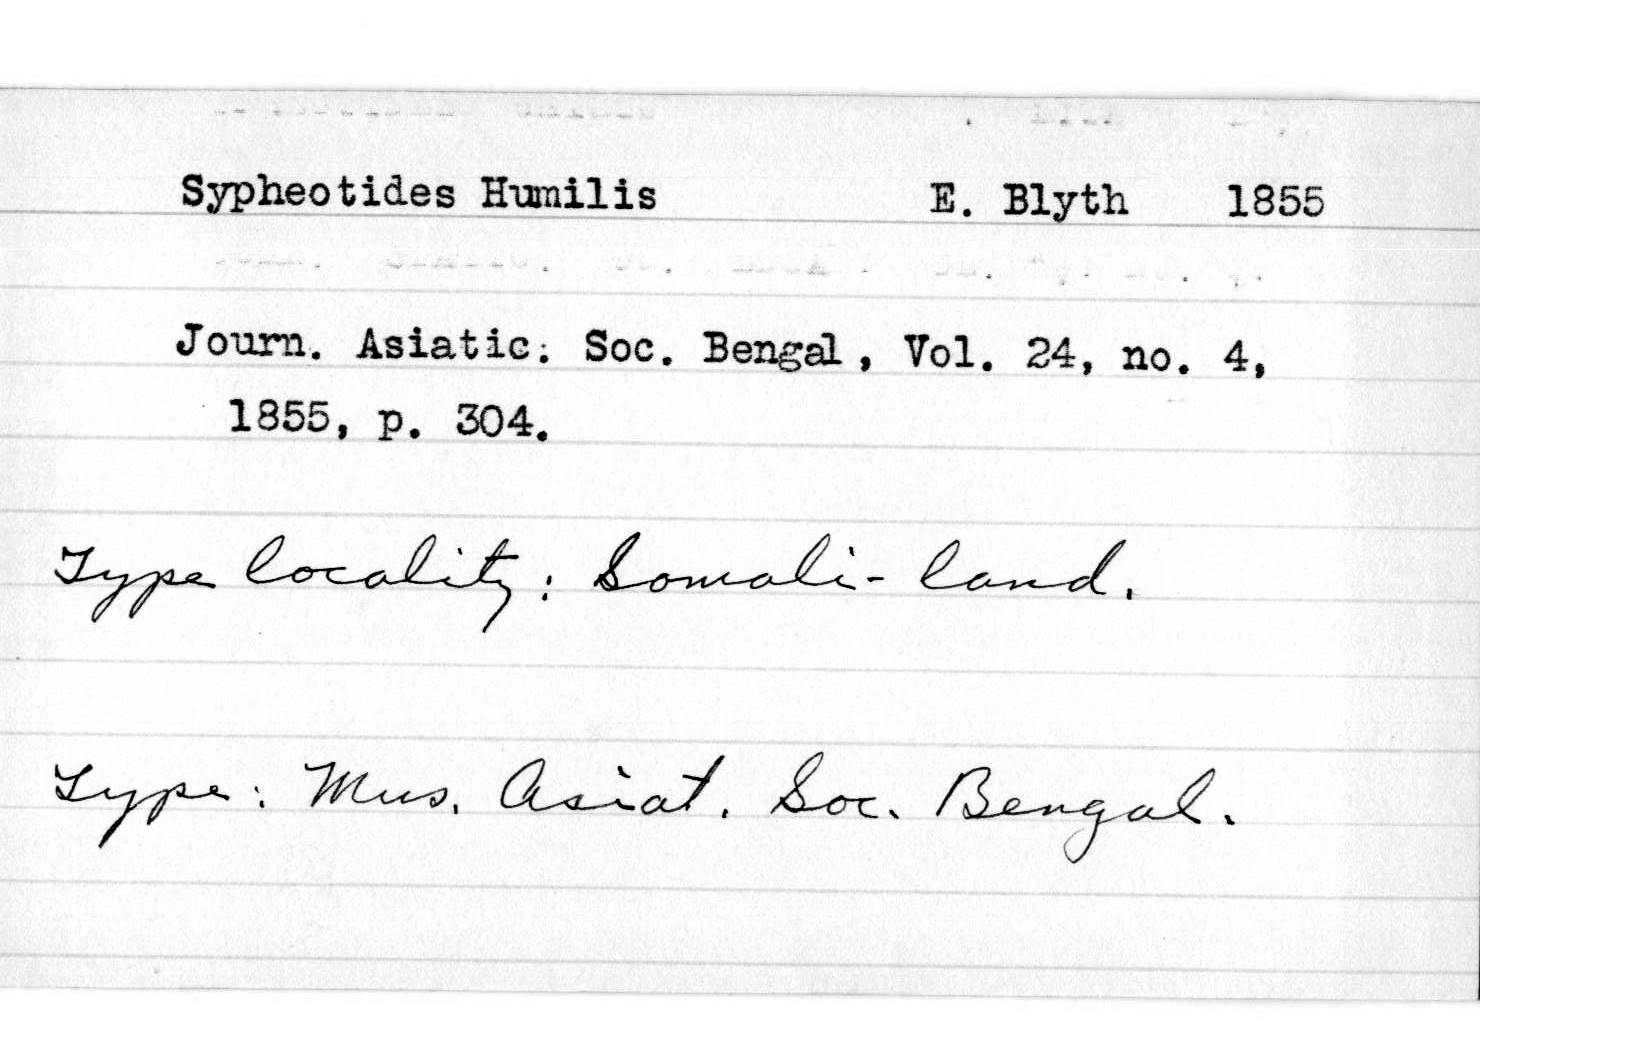 Sypheotides Humilis E. Blyth 1855
Journ. Asiatic: Soc. Bengal, Vol. 24, no. 4,
1855, p. 304.
Type locality: Somali-land.
Type: Mus. Asiat. Soc. Bengal.